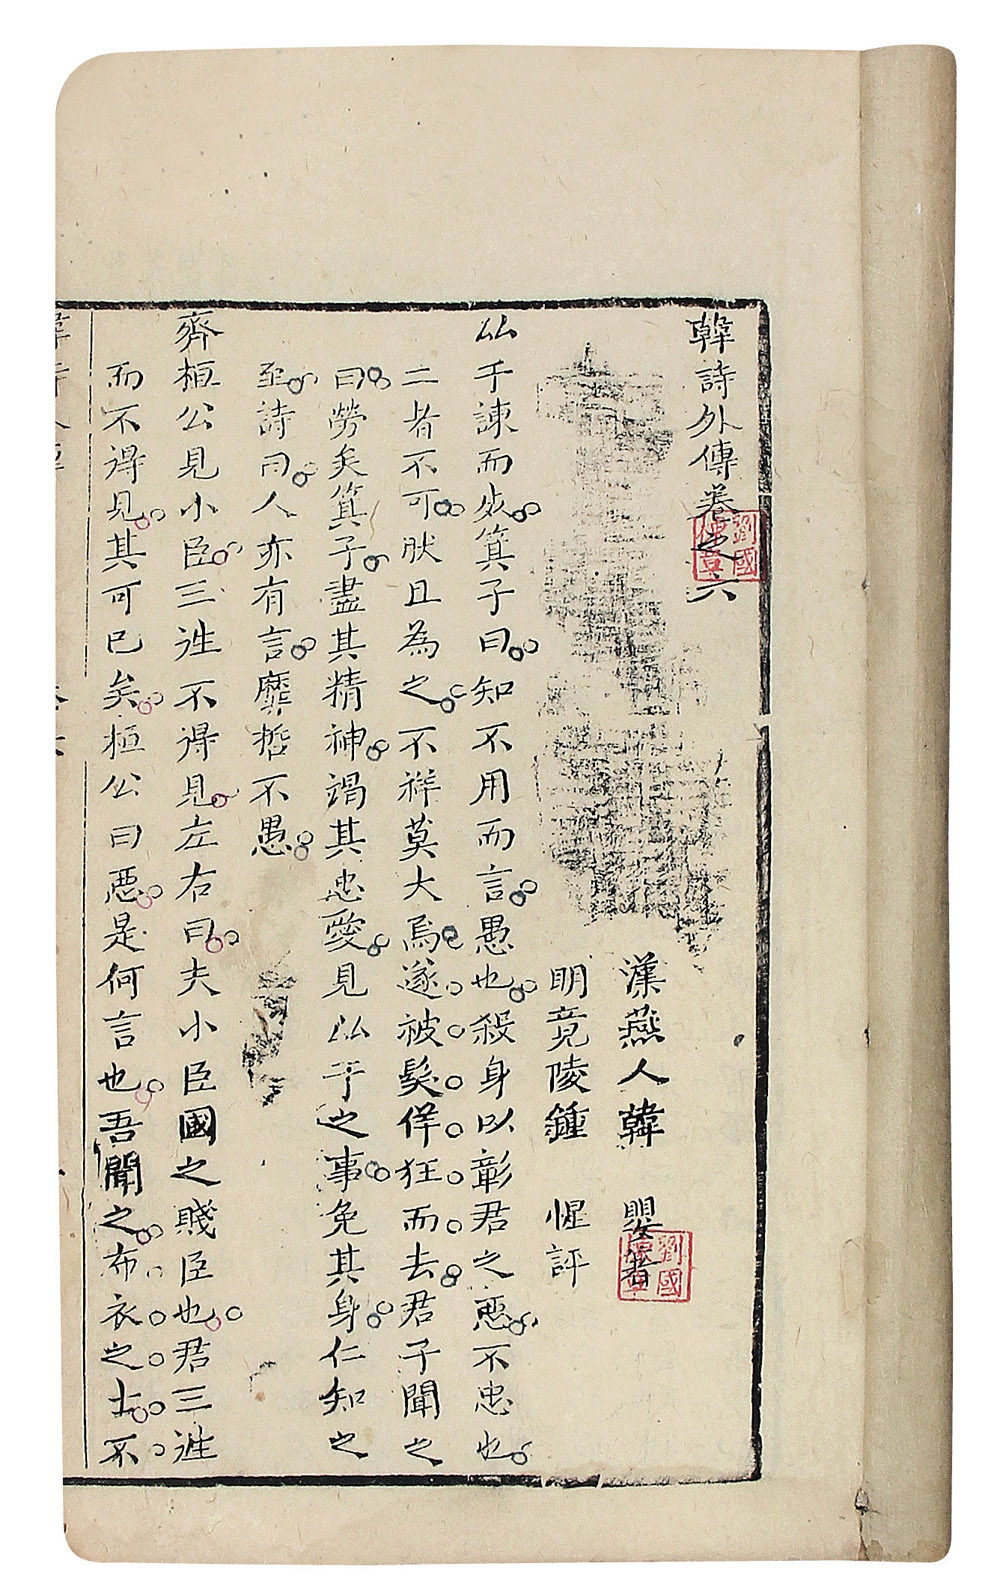 韓詩外傳卷之六
漢燕人韓　嬰著
明竟陵鍾　惺評
比干諫而死箕子曰知不用而言愚也殺身以彰君之惡不忠也
二者不可肰且為之不祥莫大焉遂被髮佯狂而去君子聞之
曰勞矣箕子盡其精神竭其忠愛見比干之事免其身仁知之
至詩曰人亦有言靡哲不愚
齊桓公見小臣三徃不得見左右曰夫小臣國之賤臣也君三徃
而不得見其可已矣桓公曰惡是何言也吾聞之布衣之士不
劉國
劉國